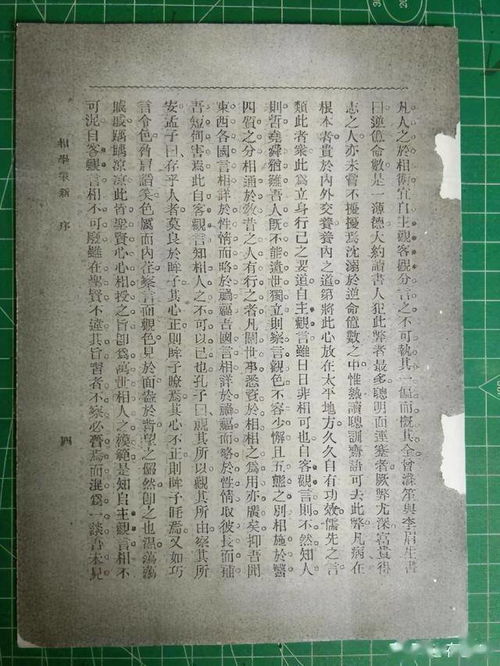 凡人之於相術宜自主觀客觀分言之不可執其一偏而概其全曾滌笙與李眉生書
曰逆億命數是一薄德大約讀書人犯此弊者最多聰明而運蹇者厥弊尤深富貴得
志之人亦未嘗不擾擾焉沈溺於逆命億數之中惟熟讀聰訓齋語可去此弊凡病在
根本者貴於內外交養養內之道第將此心放在太平地方久久自有功效儒先之言
類此者衆此為立身行己之要道自主觀言雖日日非相可也自客觀言則不然知人
則哲堯舜猶難吾人既不能遺世獨立則察言觀色不容少懈且五態之別相施於醫
四質之分相通於教昔之人有行之者凡關世事悉資於相相之為用亦廣矣抑吾聞
東西各國言相詳於性情而略於禍福吾國言相詳於禍福而略於性情取彼長而補
吾短何害焉此自客觀言知相人之不可以已也孔子曰視其所以觀其所由察其所
安孟子曰存乎人者莫良於眸子其心正則眸子瞭焉其心不正則眸子眊焉又如巧
言令色脅肩諂笑色厲而內荏察言而觀色見於面盎於背望之儼然即之也溫蕩蕩
戚戚踽踽涼涼此皆聖賢心心相授之旨即為萬世相人之模範是知自主觀言相不
可泥自客觀言相不可廢雖在聖賢不違其旨習者不察必脊焉而混為一談吾未見
相學集新 序 四